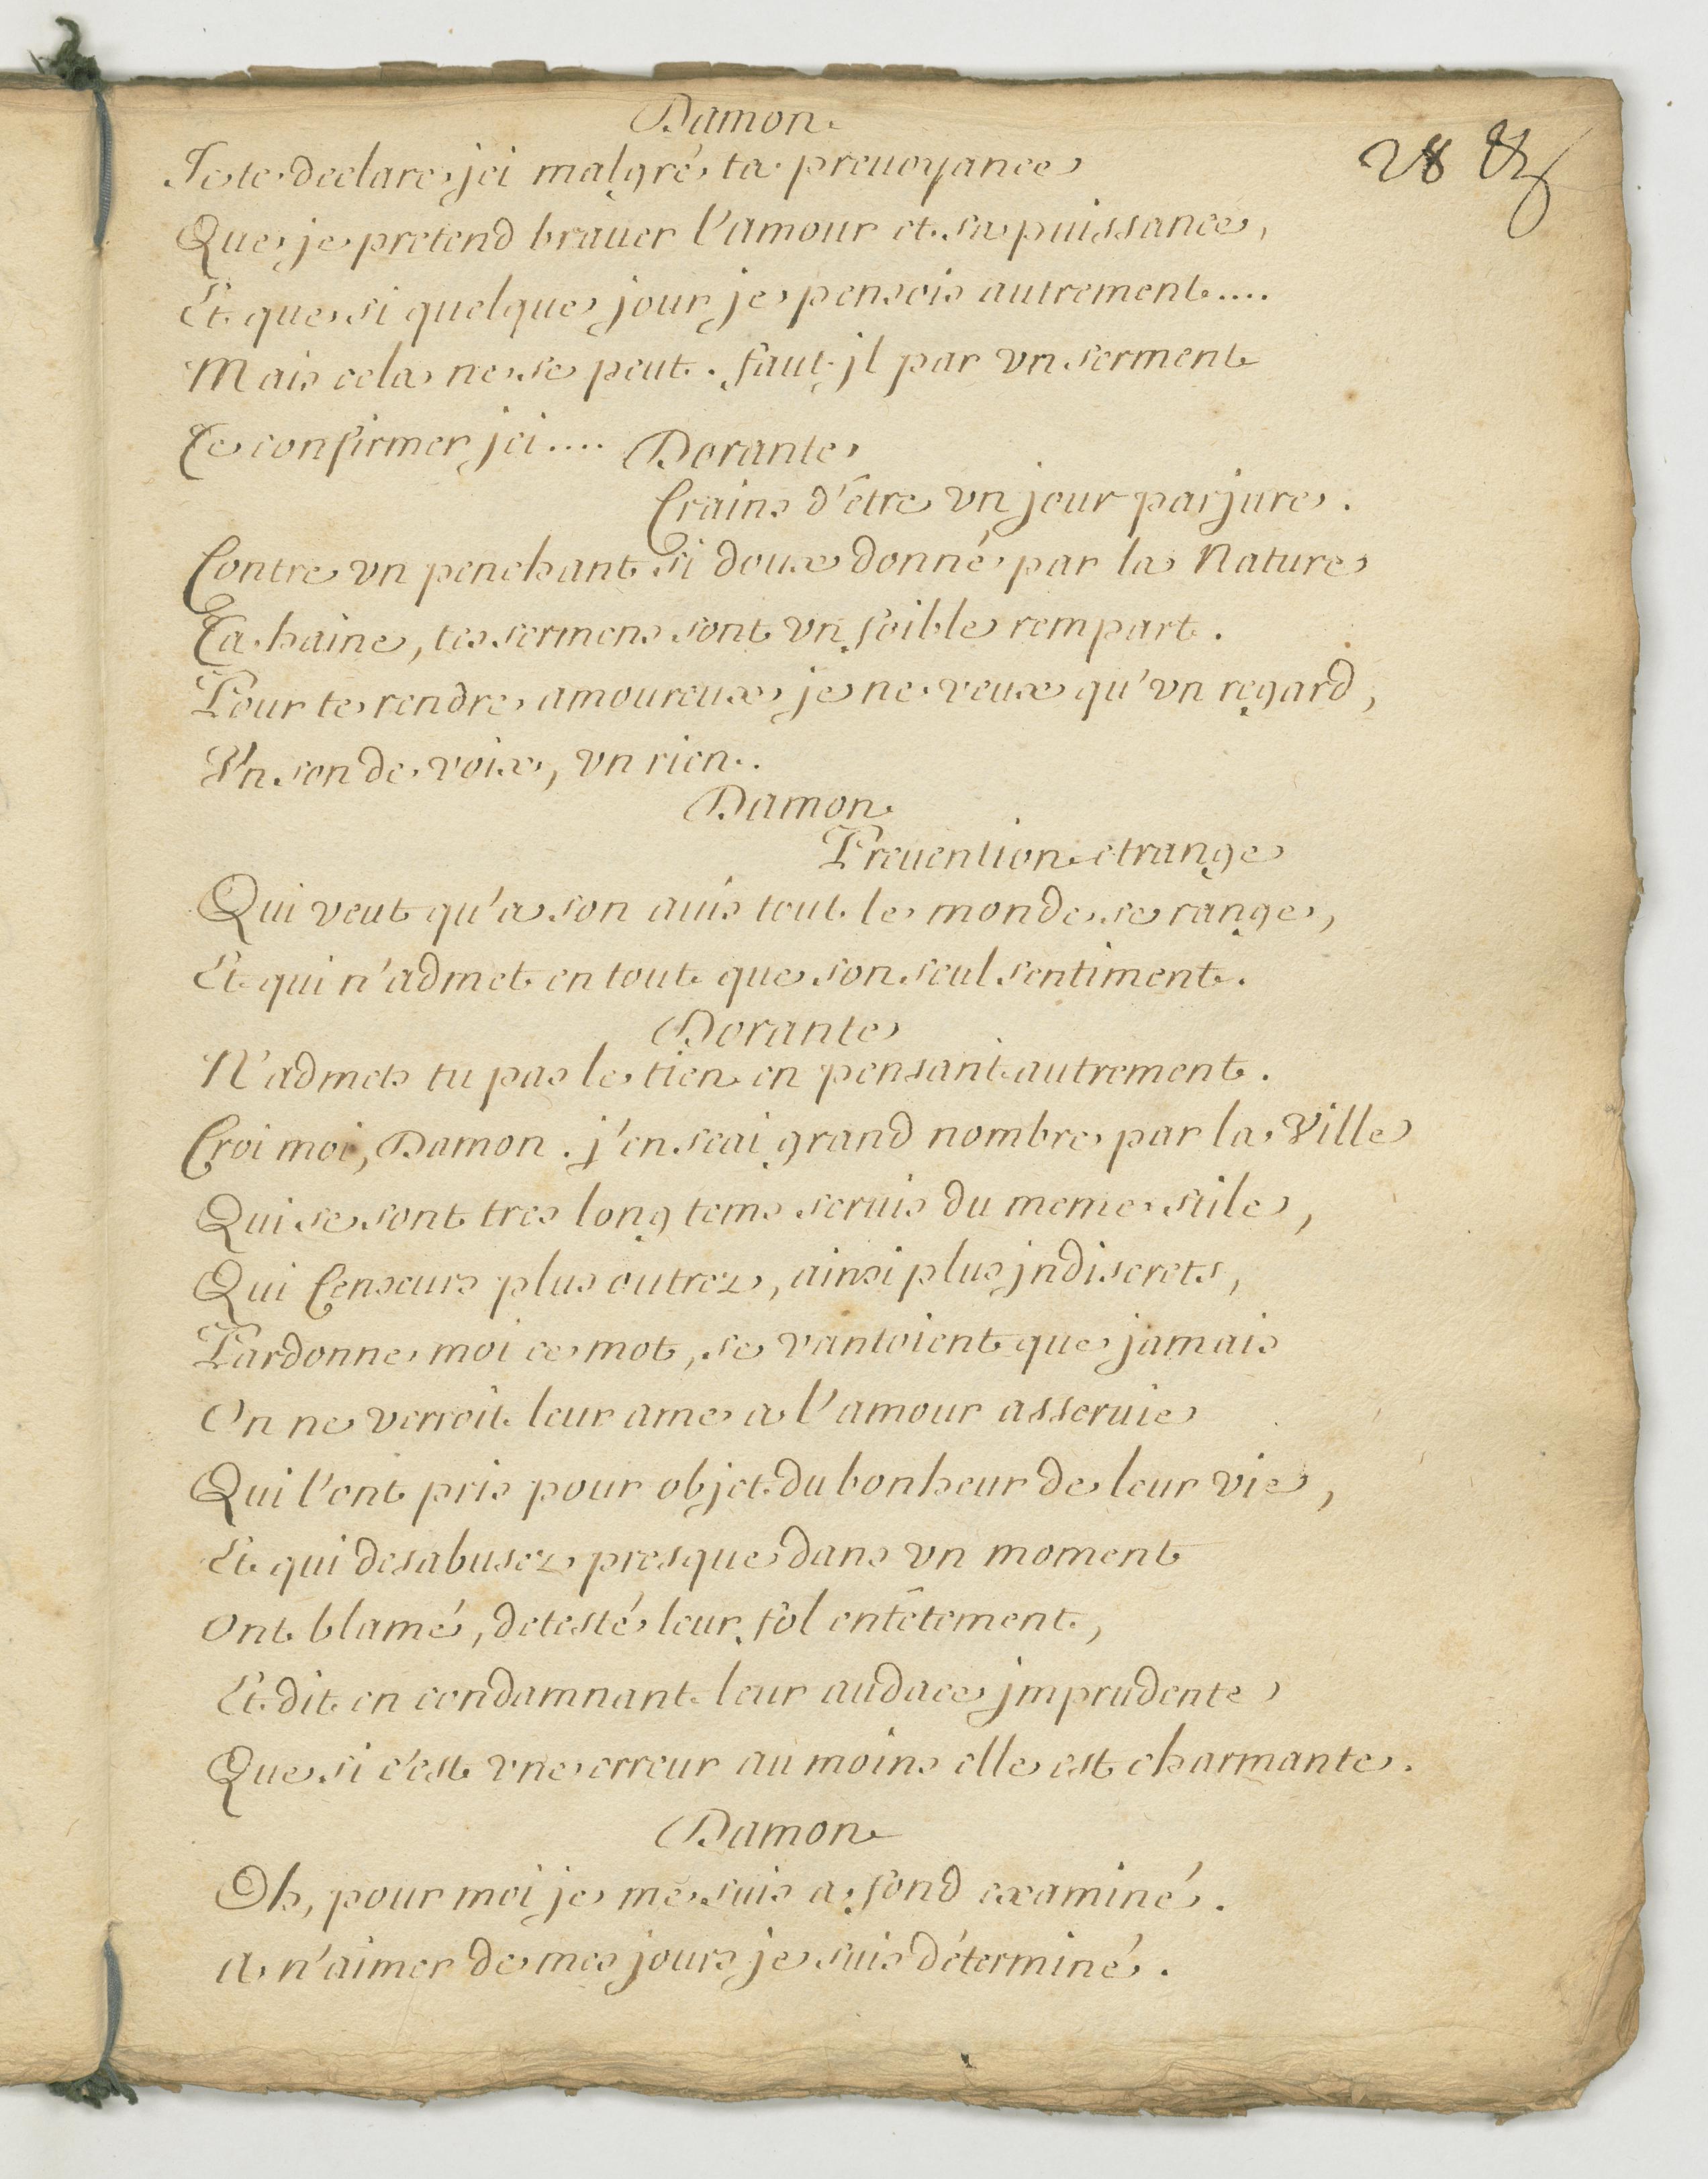 Damon
Je te declare jci malgré ta preuoyance
Que je pretend brauer l'amour et sa puissance,
Et que si quelque jour je pensois autrement....
Mais cela ne se peut. faut jl par vn serment
Te confirmer jci.... Dorante
Crains d'être vn jour parjure.
Contre vn penchant si doux donné par la Nature
Ta haine, tes sermens sont vn foible rempart.
Pour te rendre amoureux je ne veux qu'vn regard,
Vn son de voix, vn rien.
Damon
Preuention etrange
Qui veut qu'a son auis tout le monde se range,
Et qui n'admet en tout que son seul sentiment.
Dorante
N'admets tu pas le tien en pensant autrement.
Croi moi, Damon. j'en scai grand nombre par la Ville
Qui se sont tres long tems seruis du meme stile,
Qui Censeurs plus outrez, ainsi plus jndiscrets,
Pardonne moi ce mot, se vantoient que jamais
On ne verroit leur ame a l'amour asseruie
Qui l'ont pris pour objet du bonheur de leur vie,
Et qui desabusez presque dans vn moment
Ont blamé, detesté leur fol entêtement,
Et dit en condamnant leur audace jmprudente
Que si c'est vne erreur au moins elle est charmante.
Damon
Oh, pour moi je me suis a fond examiné.
A n'aimer de mes jours je suis déterminé.